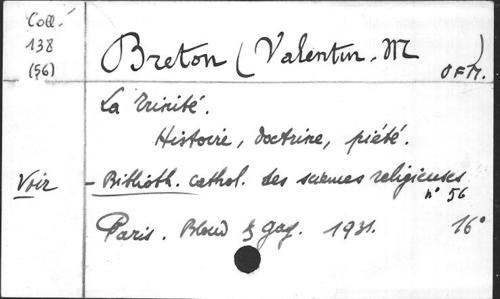 Coll.
138
(56)
Breton (Valentin. M )
O F M.
La Trinité.
Histoire, doctrine, piété.
Voir - Biblioth. cathol. des sciences religieuses
n° 56
Paris. Bloud & Gay. 1931. 16°